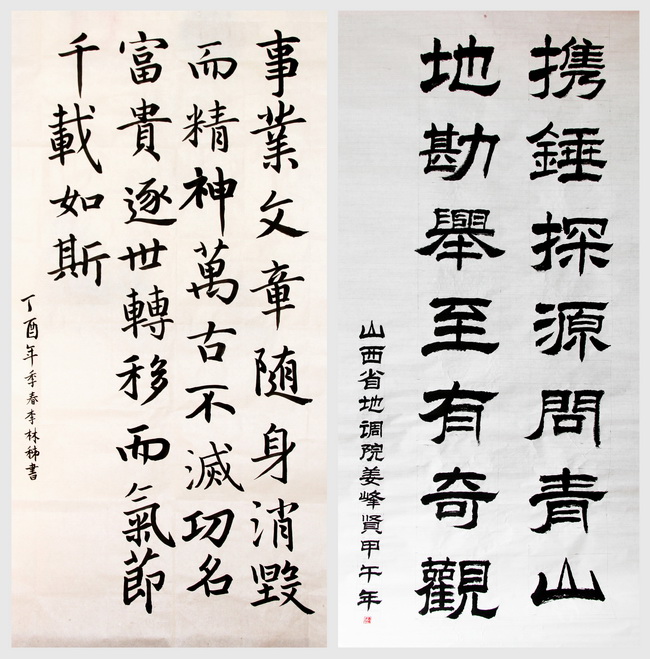 事業文章随身消毀
而精神萬古不滅功名
富貴逐世轉移而氣節
千載如斯
丁酉年季春李林秭書
携錘探源問青山
地勘舉至有奇觀
山西省地调院姜峰贤甲午年